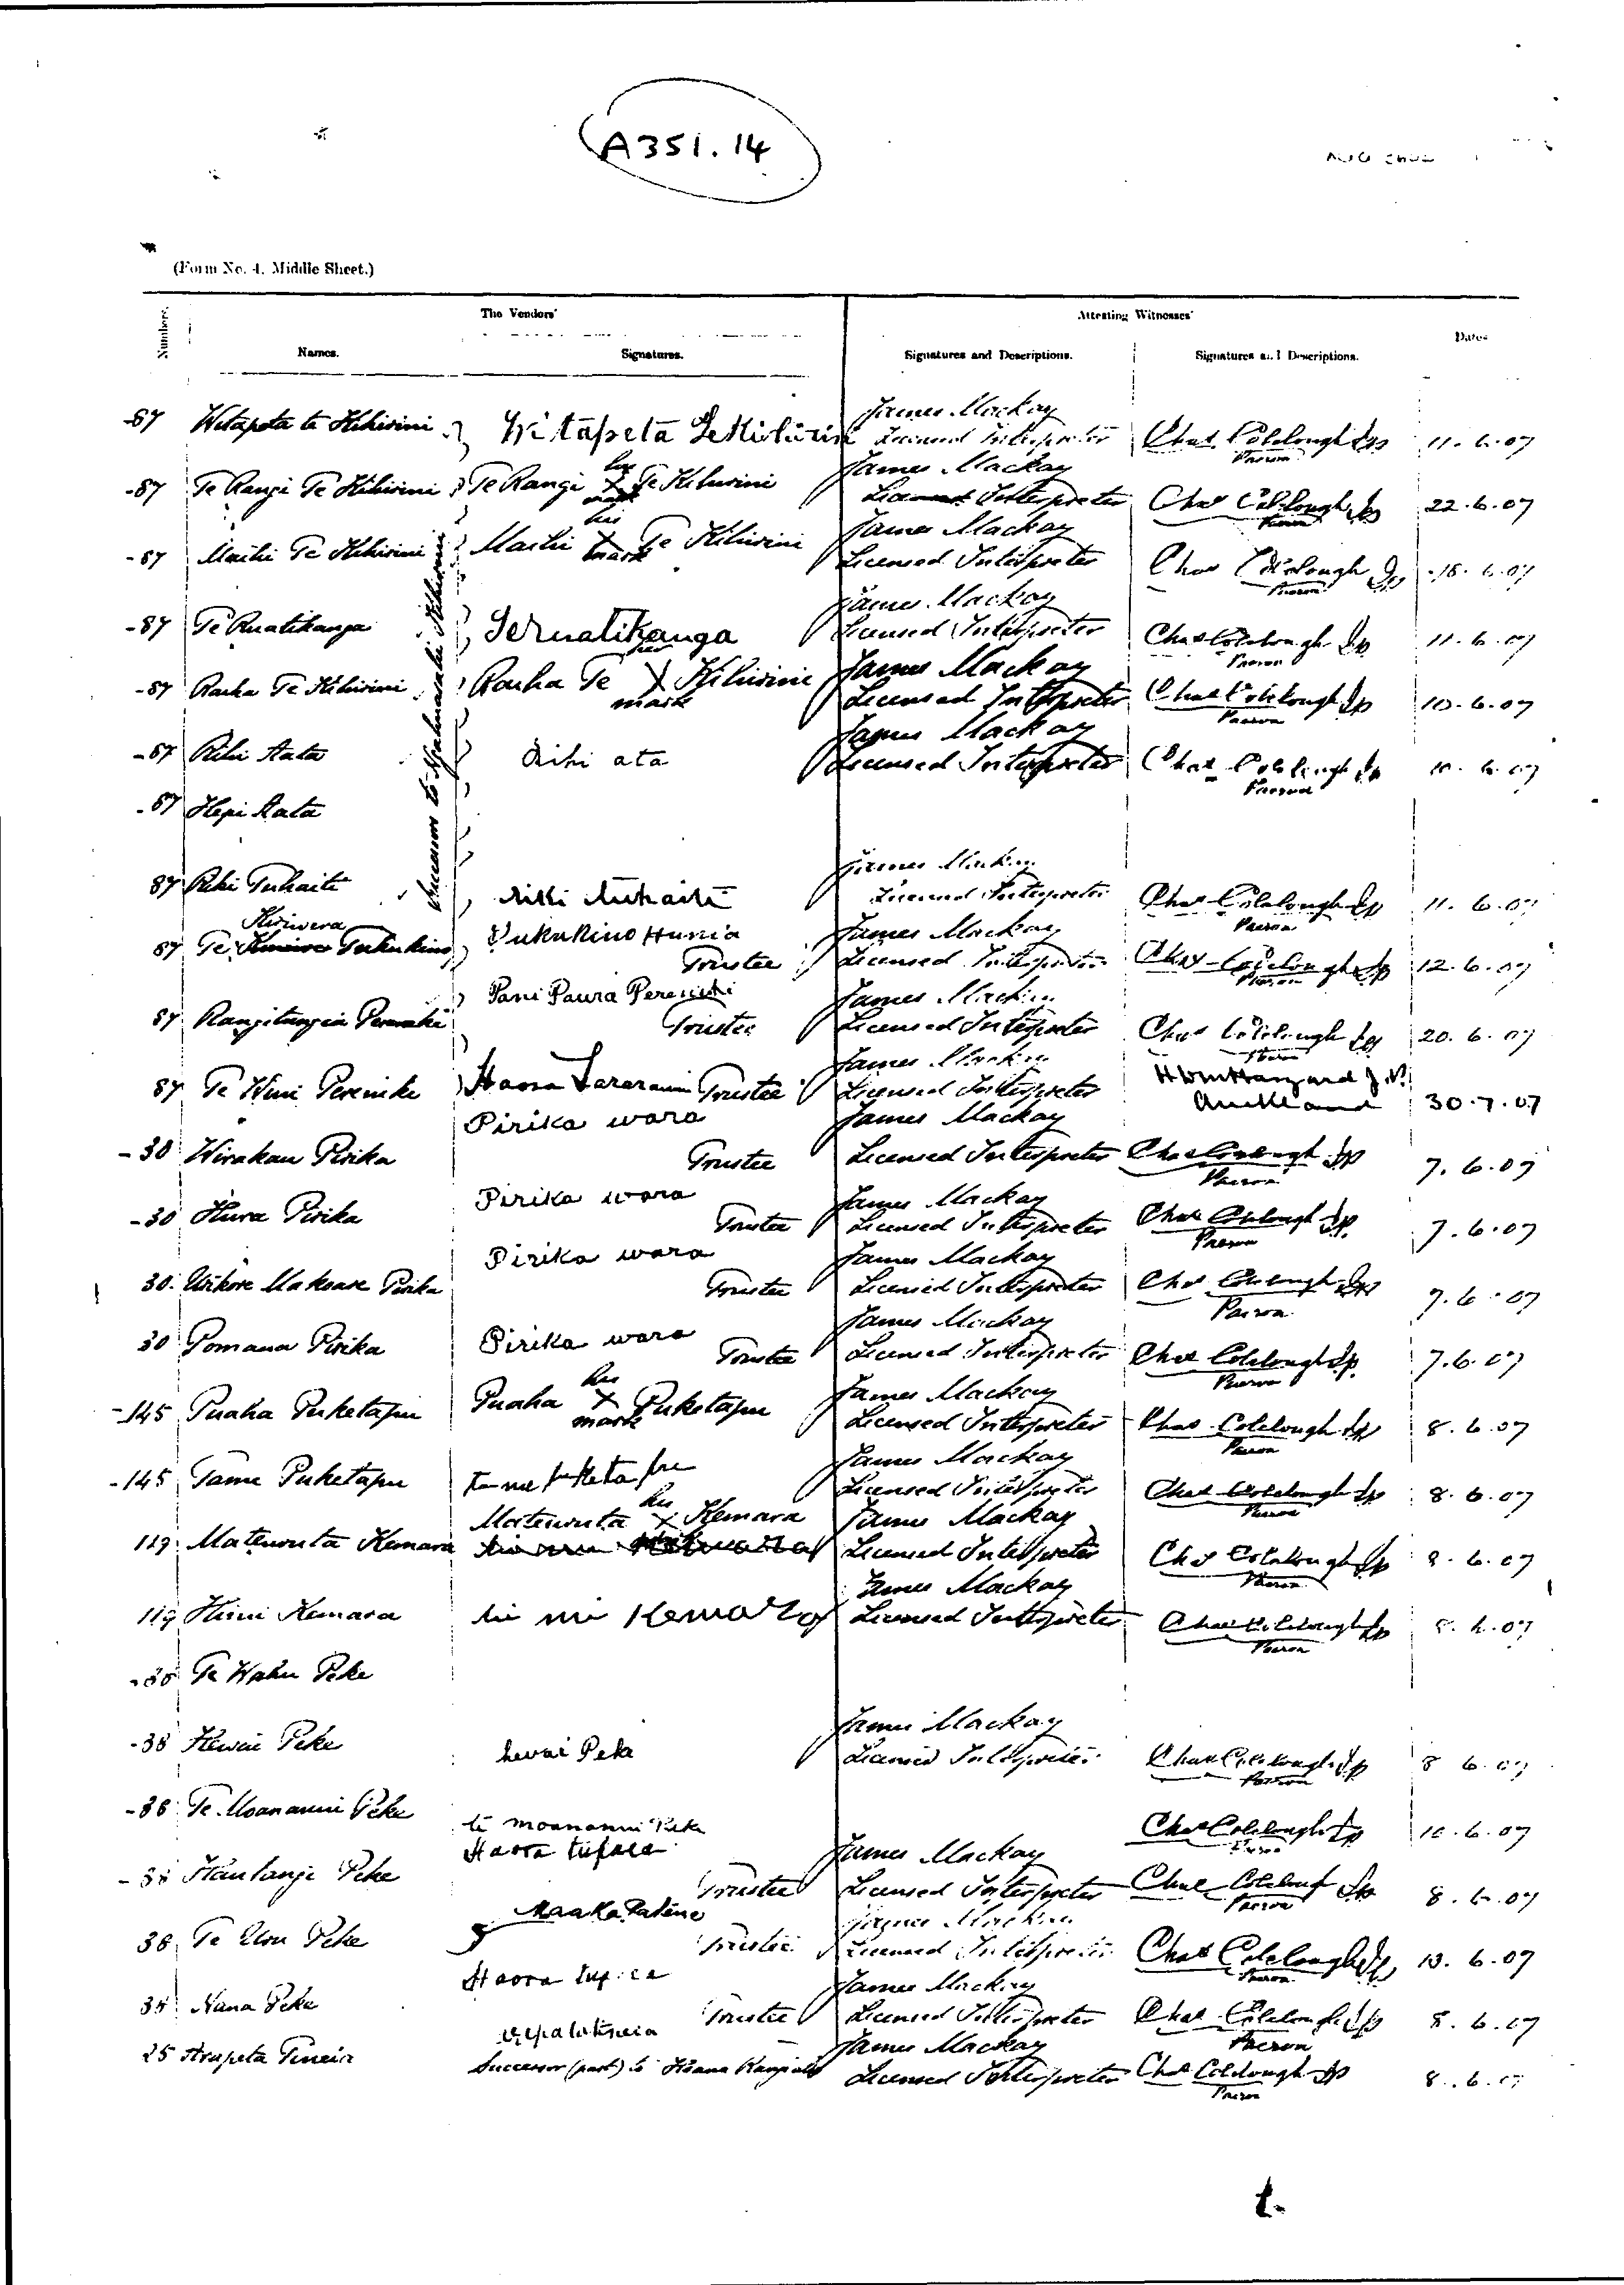 A351.14
(Form No. 4. Middle Sheet.)
The Vendors' Attesting Witnesses'
Numbers. Names. Signatures. Signatures and Descriptions. Signatures and Descriptions. Dates
James Mackay
-87 Witapeta te Kihirini Wi tapeta Te Kihirini Licensed Interpreter Chas Colclough Jp 11.6.07
Paeroa
his James Mackay
-87 Te Rangi Te Kihirini Te Rangi X Te Kihirini Licensed Interpreter Chas Colclough Jp 22.6.07
mark Paeroa
his James Mackay
-87 Te Kihirini X Te Kihirini Licensed Interpreter Chas Colclough Jp 6.07
mark Paeroa
James Mackay
-87 Te Ruatikanga Te Ruatikanga Licensed Interpreter Chas Colclough Jp 11.6.07
her Paeroa
James Mackay
-87 Raeha Te Kihirini Raeha Te X Kihirini Licensed Interpreter Chas Colclough Jp 10.6.07
mark Paeroa
James Mackay
-87 Rihi Aata Rihi ata Licensed Interpreter Chas Colclough Jp
Paeroa
-87 Hepi Aata
Successors to
James Mackay
87 Riki Tuhaiti Licensed Interpreter Chas Colclough Jp 11.6.07
Paeroa
Kiriwera Tukukino Hunia James Mackay
87 Te Tukukino Trustee Licensed Interpreter Chas Colclough Jp 12.6.07
Paeroa
Pani Paura Pereniki James Mackay
87 Rangitungia Pereniki Trustee Licensed Interpreter Chas Colclough Jp 20.6.07
James Mackay
87 Te Wini Pereniki Haora Tararanui Trustee Licensed Interpreter Auckland 30.7.07
Pirika wara James Mackay
-30 Wirakau Pirika Trustee Licensed Interpreter Chas Colclough Jp 7.6.07
Paeroa
Pirika wara James Mackay
-30 Hura Pirika Trustee Licensed Interpreter Chas Colclough Jp 7.6.07
Paeroa
Pirika wara James Mackay
30 Makoare Pirika Trustee Licensed Interpreter Chas Colclough Jp 7.6.07
Paeroa
Pirika wara James Mackay
30 Pomana Pirika Trustee Licensed Interpreter Chas Colclough Jp 7.6.07
Paeroa
his James Mackay
-145 Puaha Puketapu Puaha X Puketapu Licensed Interpreter Chas Colclough Jp 8.6.07
mark Paeroa
James Mackay
-145 Tame Puketapu Tame Puketapu Licensed Interpreter Chas Colclough Jp 8.6.07
Paeroa
his
Matewuta X Kemara James Mackay
119 Matewuta Kemara Licensed Interpreter Chas Colclough Jp 8.6.07
Paeroa
James Mackay
119 Himi Kemara hi mi Kemara Licensed Interpreter Chas Colclough Jp
Paeroa
-38 Te Wahu Peke
James Mackay
-38 Hewai Peke hewai Peke Licensed Interpreter Chas Colclough Jp 8 6.07
Paeroa
-38 Te Moananui Peke te moananui Peke Chas Colclough Jp 10.6.07
Haora tupaea James Mackay
-38 Hautangi Peke Trustee Licensed Interpreter Chas Colclough Jp 8.6.07
Paeroa
Maaka Patene James Mackay
38 Te Peke Trustee Licensed Interpreter Chas Colclough Jp 13.6.07
Paeroa
Haora James Mackay
38 Nana Peke Trustee Licensed Interpreter Chas Colclough Jp 8.6.07
Paeroa
James Mackay
25 Arapeta Tineia Successor (part) to Licensed Interpreter Chas Colclough Jp 8.6.07
Paeroa